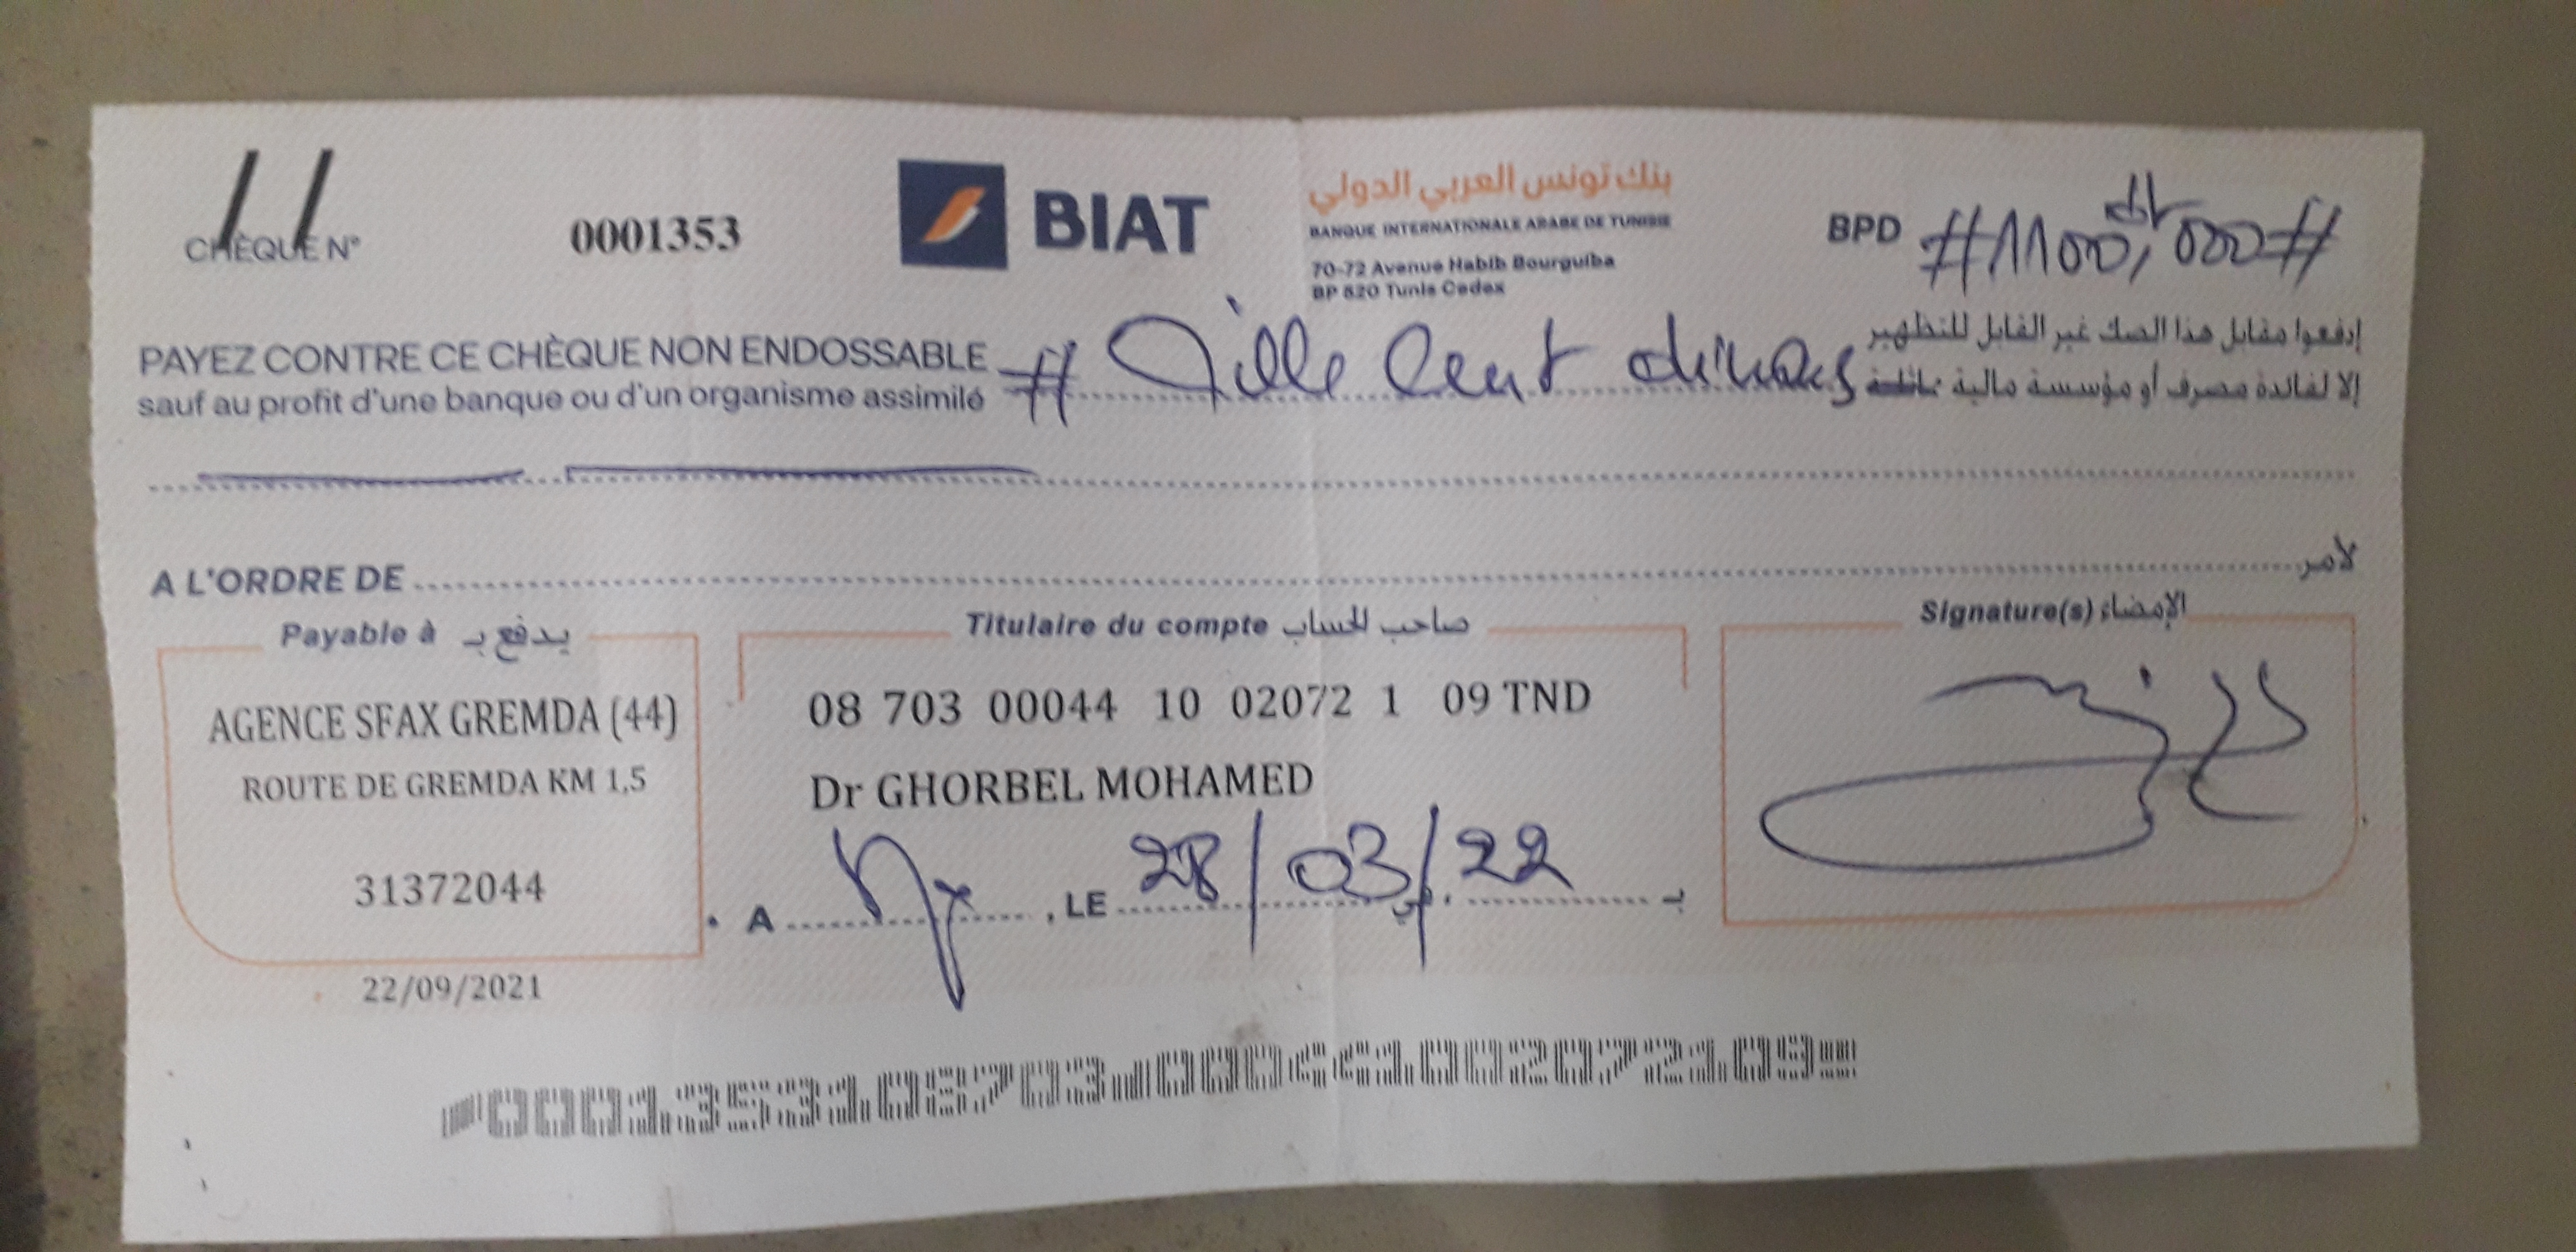 CHÈQUE N° 0001353
BIAT
بنك تونس العربي الدولي
BANQUE INTERNATIONALE ARABE DE TUNISIE
70-72 Avenue Habib Bourguiba
BP 520 Tunis Cedex
BPD #1100,000#
PAYEZ CONTRE CE CHÈQUE NON ENDOSSABLE
sauf au profit d'une banque ou d'un organisme assimilé
# Mille Cent dinars
إدفعوا مقابل هذا الصك غير القابل للتظهير
إلا لفائدة مصرف أو مؤسسة مالية
A L'ORDRE DE لأمر
Payable à يدفع بـ
AGENCE SFAX GREMDA (44)
ROUTE DE GREMDA KM 1,5
31372044
22/09/2021
Titulaire du compte صاحب الحساب
08 703 00044 10 02072 1 09 TND
Dr GHORBEL MOHAMED
A , LE 28/03/22 بـ
Signature(s) الإمضاء
0001353108703000441002072109